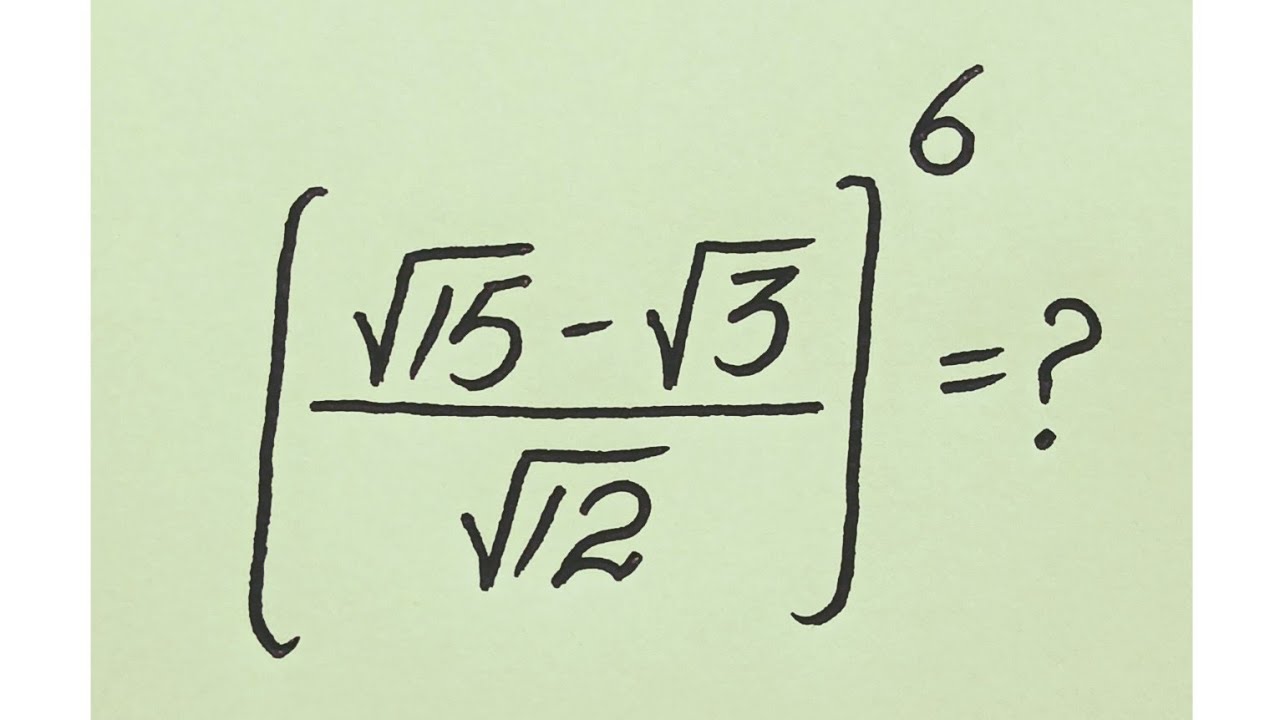 [(√15 - √3) / √12]^6 = ?